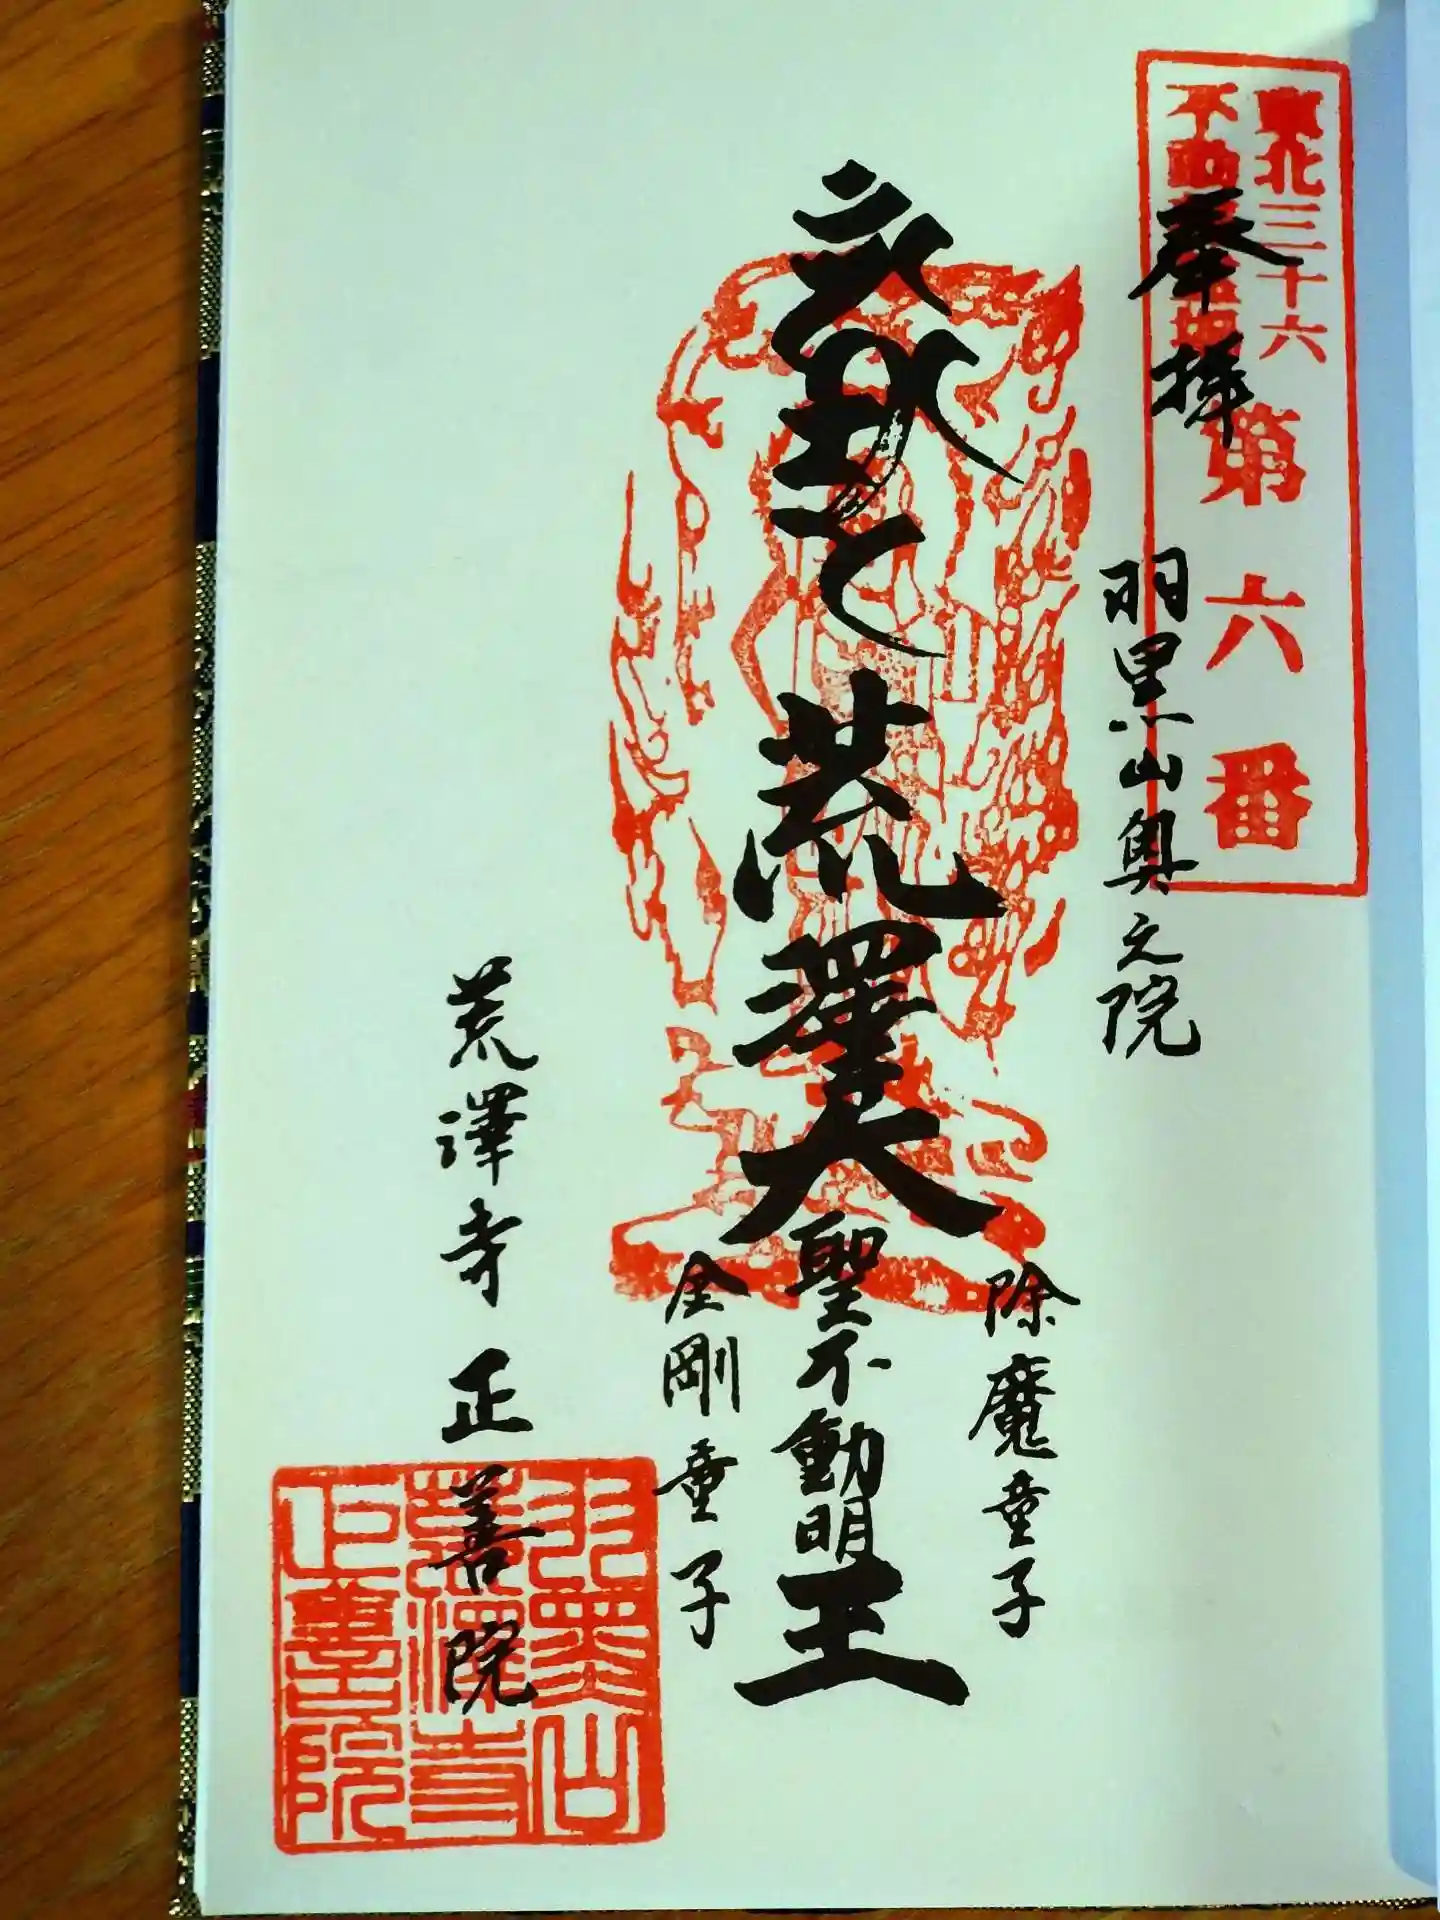 東北三十六
不動尊霊場
第六番
奉拝
羽黒山奥之院
除魔童子
荒澤大聖不動明王
金剛童子
荒澤寺 正善院
羽黒山
荒澤寺
正善院